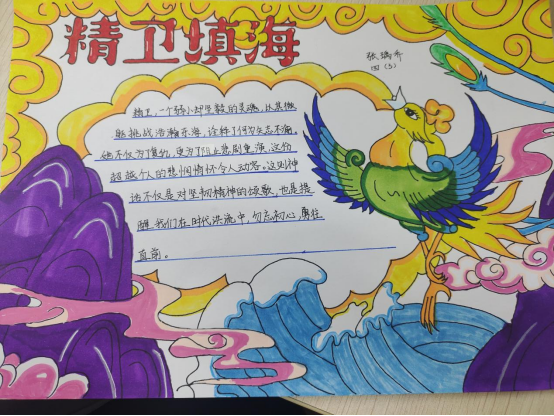 精卫填海
张瑀乔
四（3）
精卫，一个弱小却坚毅的灵魂，以其微
躯挑战浩瀚东海，诠释了何为矢志不渝。
她不仅为了复仇，更为了阻止悲剧重演，这份
超越个人的悲悯情怀令人动容。这则神
话不仅是对坚韧精神的颂歌，也是提
醒我们在时代洪流中，勿忘初心，勇往
直前。